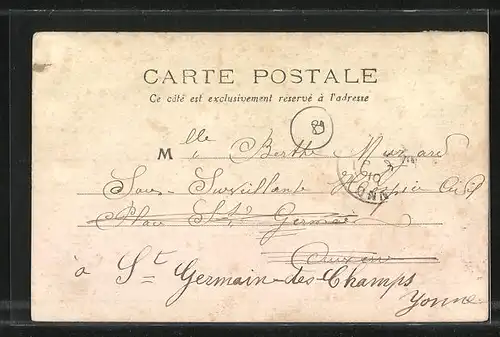 CARTE POSTALE
Ce côté est exclusivement réservé à l'adresse
89
M lle Berthe
Sous-Surveillante Hospice Civil
Place St Germain
Auxerre
à St Germain-des-Champs
Yonne